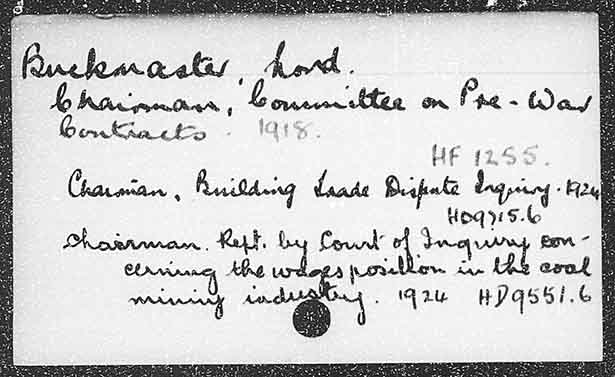 Buckmaster, Lord.
Chairman, Committee on Pre-War
Contracts. 1918.
HF 1255.
Chairman, Building Trade Dispute Inquiry. 1924
HD9715.6
Chairman. Rept. by Court of Inquiry con-
cerning the wages position in the coal
mining industry. 1924 HD9551.6